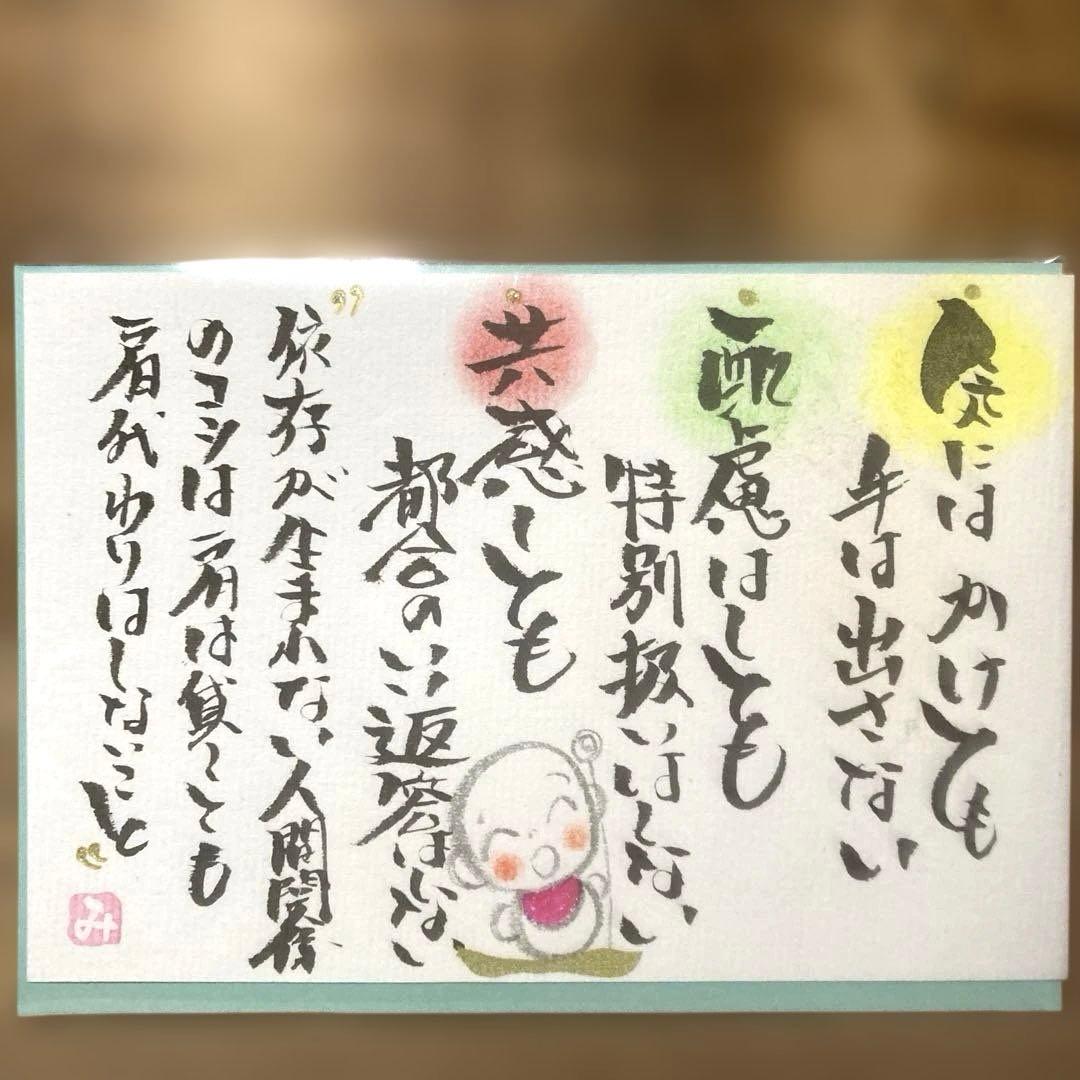 気にはかけても
手は出さない
配慮はしても
特別扱いはしない
共感しても
都合のいい返答はしない
"依存が生まれない人間関係
のコツは肩は貸しても
肩代わりはしないこと"
み